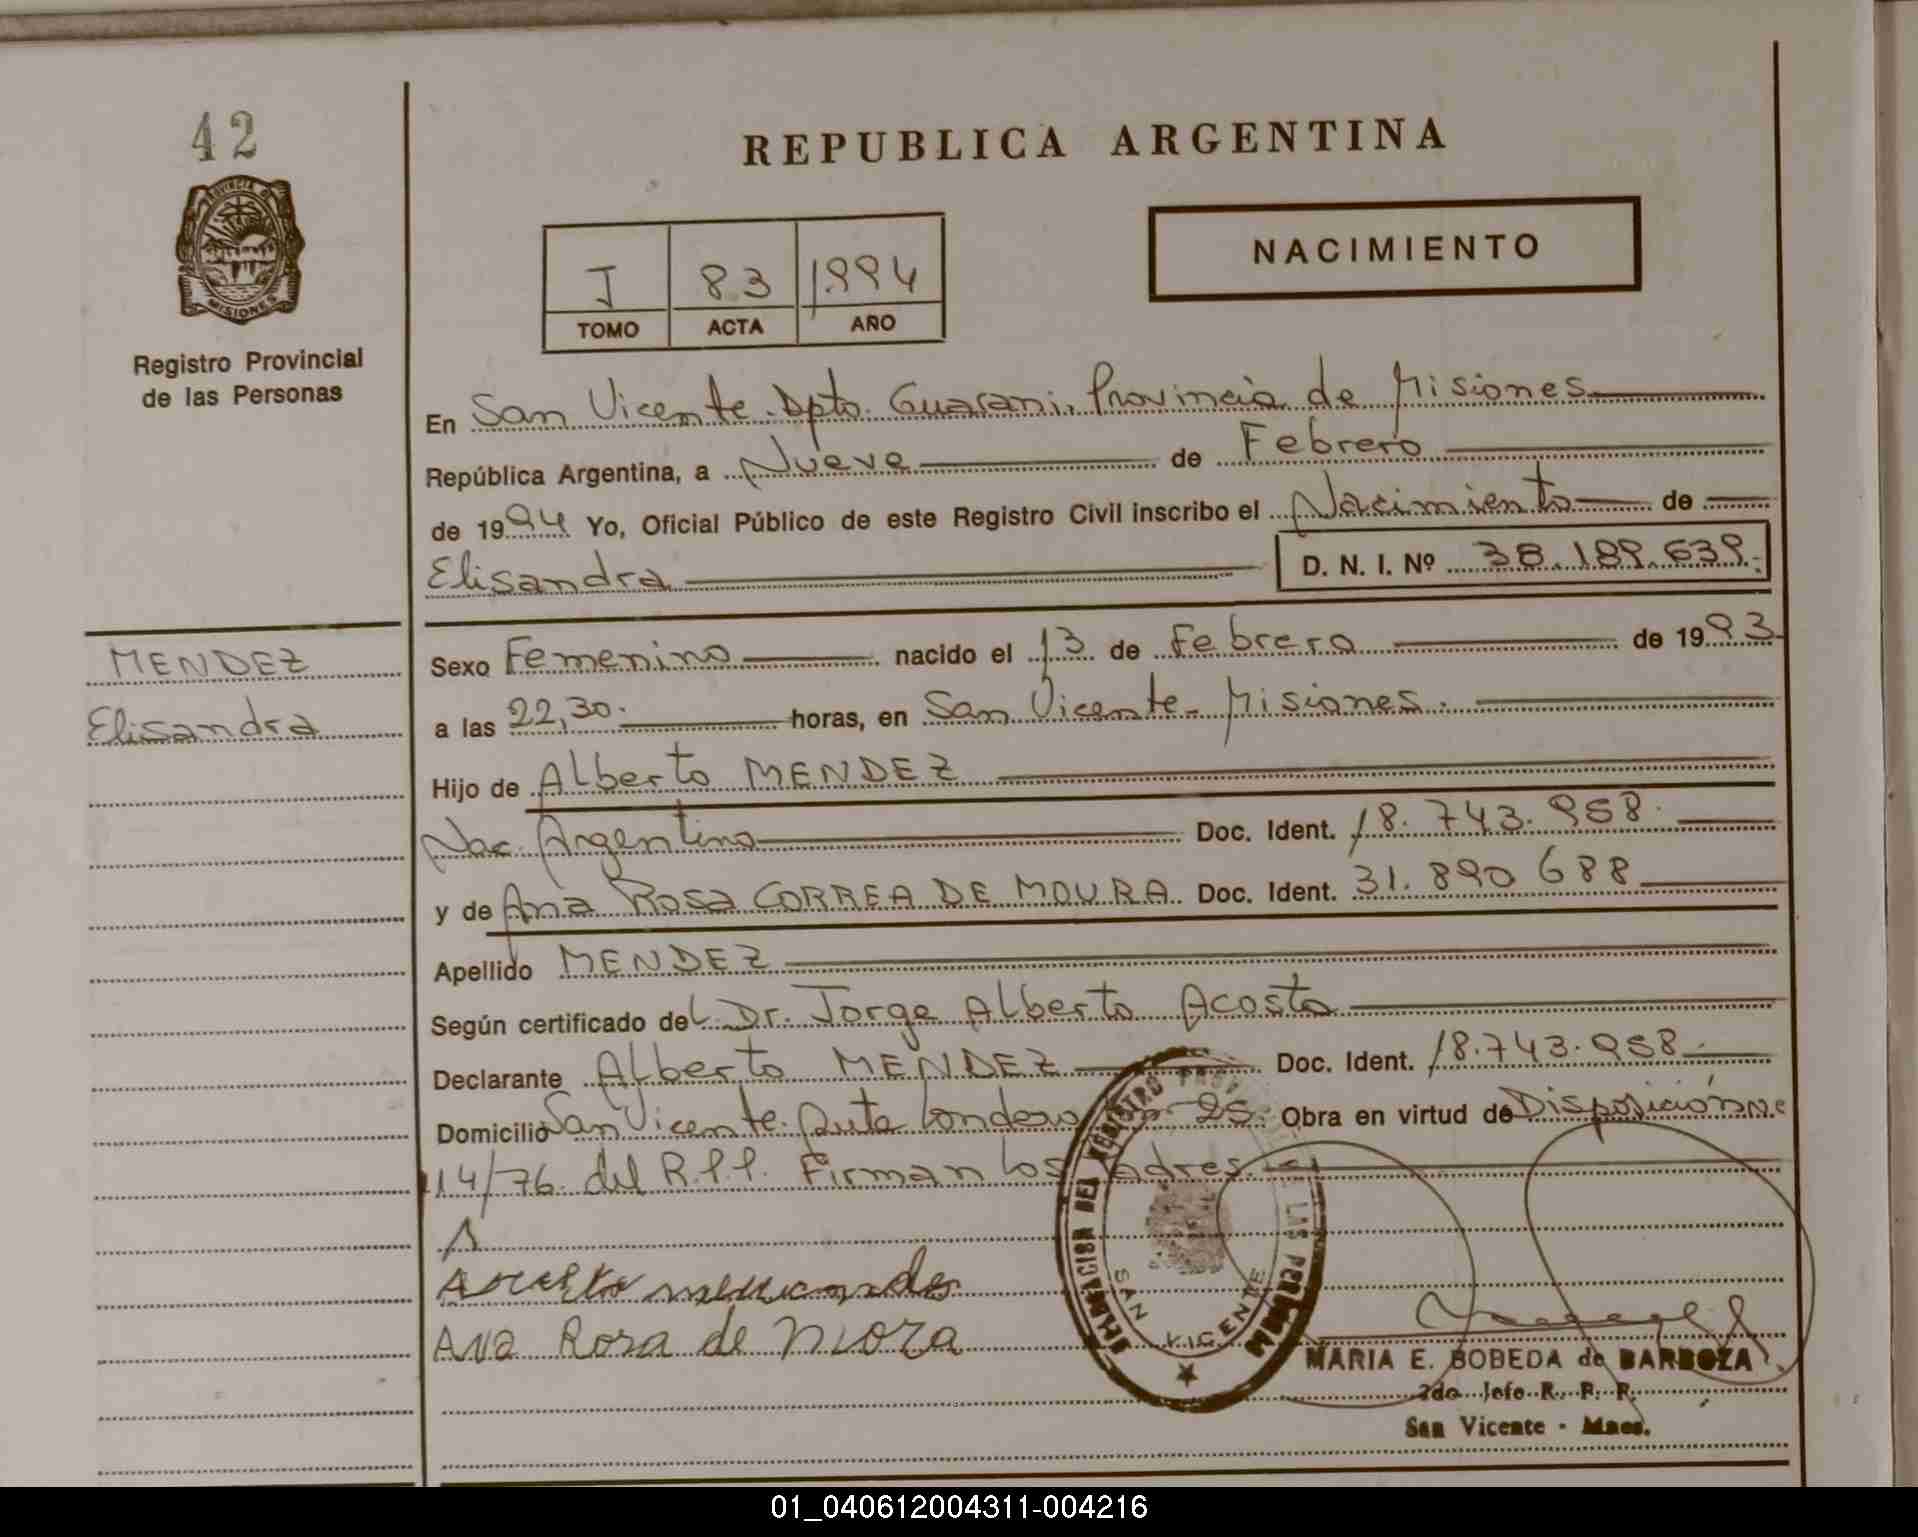 42
PROVINCIA DE
MISIONES
Registro Provincial
de las Personas
REPUBLICA ARGENTINA
NACIMIENTO
I 83 1994
TOMO ACTA AÑO
En San Vicente. Dpto. Guarani, Provincia de Misiones
República Argentina, a Nueve de Febrero
de 1994 Yo, Oficial Público de este Registro Civil inscribo el Nacimiento de
Elisandra D. N. I. Nº 38.189.639.
MENDEZ
Elisandra
Sexo Femenino nacido el 13 de Febrero de 1993
a las 22,30. horas, en San Vicente- Misiones.
Hijo de Alberto MENDEZ
Nac. Argentino Doc. Ident. 18.743.958.
y de Ana Rosa CORREA DE MOURA. Doc. Ident. 31.890 688
Apellido MENDEZ
Según certificado del Dr. Jorge Alberto Acosta
Declarante Alberto MENDEZ Doc. Ident. 18.743.958
Domicilio San Vicente. Ruta Londero 25. Obra en virtud de Disposición Nº
114/76. del R.P.P. Firman los Padres.
Ana Rosa de Mora
DEL REGISTRO PROVINCIAL DE LAS PERSONAS
SAN VICENTE
MARIA E. BOBEDA de BARBOZA
2do. Jefe R. P. P.
San Vicente - Mnes.
01_040612004311-004216